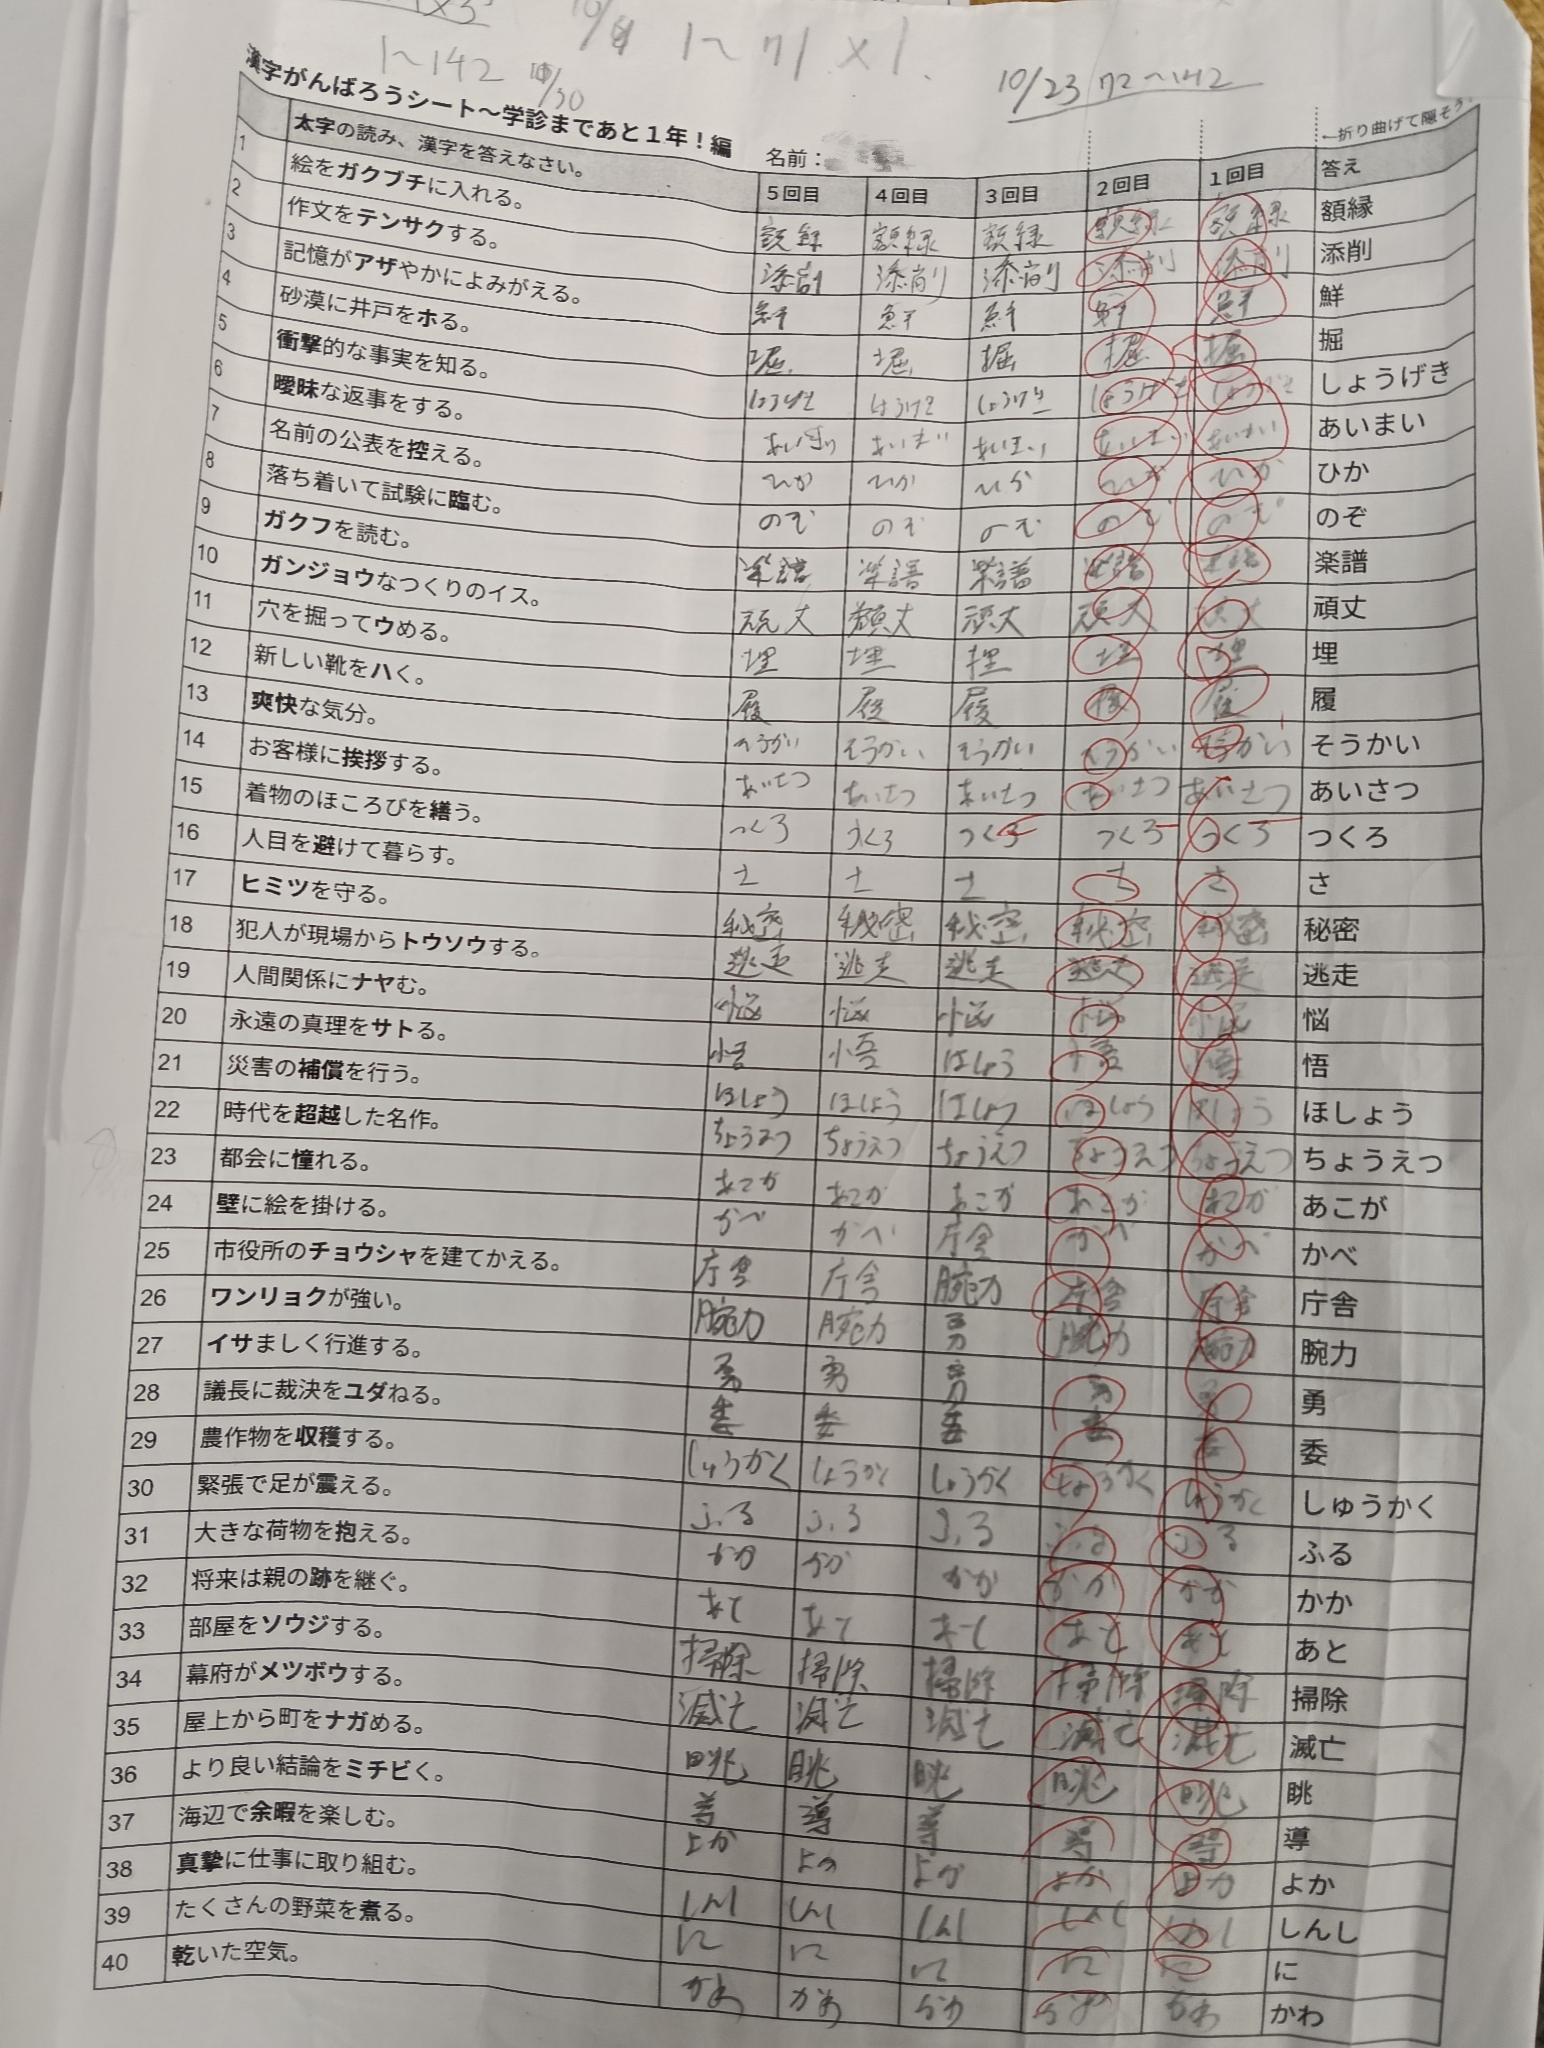 1~142 10/30
1~71 ×1.
10/23 72~142
漢字がんばろうシート～学診まであと1年！編
名前：
←折り曲げて隠そう
太字の読み、漢字を答えなさい。 5回目 4回目 3回目 2回目 1回目 答え
1 絵をガクブチに入れる。 額縁
2 作文をテンサクする。 添削 添削 添削 添削 添削 添削
3 記憶がアザやかによみがえる。 鮮 鮮 鮮 鮮 鮮 鮮
4 砂漠に井戸をホる。 掘 掘 掘 掘
5 衝撃的な事実を知る。 しょうげき
6 曖昧な返事をする。 あいまい あいまい あいまい あいまい あいまい あいまい
7 名前の公表を控える。 ひか ひか ひか ひか ひか ひか
8 落ち着いて試験に臨む。 のぞ のぞ のぞ のぞ のぞ のぞ
9 ガクフを読む。 楽譜 楽譜 楽譜 楽譜 楽譜 楽譜
10 ガンジョウなつくりのイス。 頑丈
11 穴を掘ってウめる。 埋 埋 埋 埋 埋
12 新しい靴をハく。 履 履 履 履 履 履
13 爽快な気分。 そうかい そうかい そうかい そうかい そうかい
14 お客様に挨拶する。 あいさつ あいさつ あいさつ あいさつ あいさつ あいさつ
15 着物のほころびを繕う。 つくろ つくろ つくろ つくろ つくろ つくろ
16 人目を避けて暮らす。 さ さ さ さ さ さ
17 ヒミツを守る。 秘密 秘密 秘密 秘密 秘密 秘密
18 犯人が現場からトウソウする。 逃走 逃走 逃走 逃走 逃走 逃走
19 人間関係にナヤむ。 悩 悩 悩 悩 悩 悩
20 永遠の真理をサトる。 悟 悟 ほしょう 悟 悟 悟
21 災害の補償を行う。 ほしょう ほしょう ほしょう ほしょう ほしょう ほしょう
22 時代を超越した名作。 ちょうえつ ちょうえつ ちょうえつ ちょうえつ ちょうえつ ちょうえつ
23 都会に憧れる。 あこが あこが あこが あこが あこが あこが
24 壁に絵を掛ける。 かべ かべ 庁舎 かべ かべ かべ
25 市役所のチョウシャを建てかえる。 庁舎 庁舎 腕力 庁舎 庁舎 庁舎
26 ワンリョクが強い。 腕力 腕力 勇 腕力 腕力 腕力
27 イサましく行進する。 勇 勇 勇 勇 勇 勇
28 議長に裁決をユダねる。 委 委 委 委 委 委
29 農作物を収穫する。 しゅうかく
30 緊張で足が震える。 ふる ふる ふる ふる ふる ふる
31 大きな荷物を抱える。 かか かか かか かか かか かか
32 将来は親の跡を継ぐ。 あと あと あと あと あと あと
33 部屋をソウジする。 掃除 掃除 掃除 掃除 掃除 掃除
34 幕府がメツボウする。 滅亡 滅亡 滅亡 滅亡 滅亡 滅亡
35 屋上から町をナガめる。 眺 眺 眺 眺 眺 眺
36 より良い結論をミチビく。 導 導 導 導 導 導
37 海辺で余暇を楽しむ。 よか よか よか よか よか よか
38 真摯に仕事に取り組む。 しんし しんし しんし しんし しんし しんし
39 たくさんの野菜を煮る。 に に に に に に
40 乾いた空気。 かわ かわ かわ かわ かわ かわ